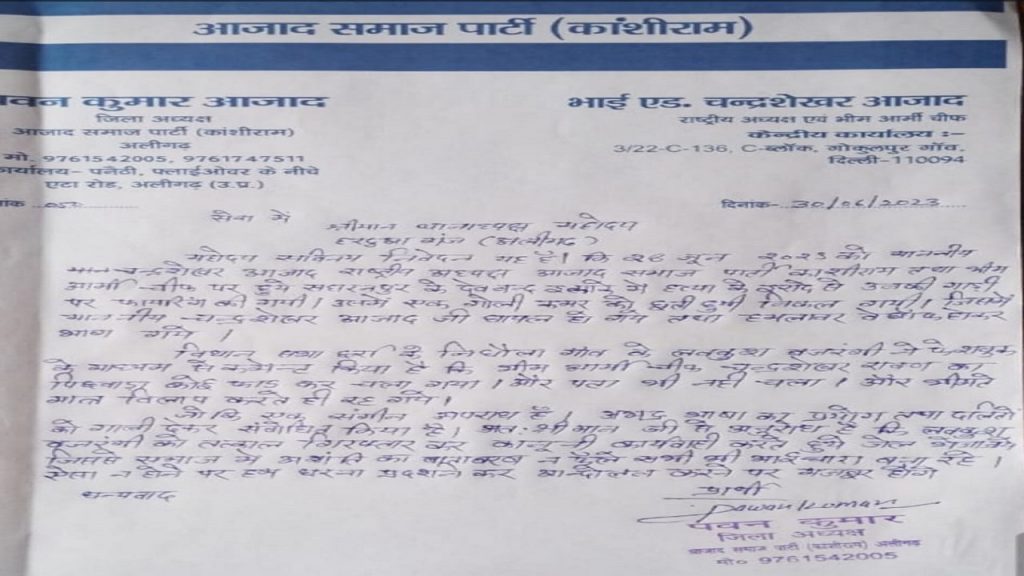 आजाद समाज पार्टी (कांशीराम)
पवन कुमार आजाद
जिला अध्यक्ष
आजाद समाज पार्टी (कांशीराम)
अलीगढ़
मो. 9761542005, 9761747511
कार्यालय- पनैठी, फ्लाईओवर के नीचे
एटा रोड, अलीगढ़ (उ.प्र.)
भाई एड. चन्द्रशेखर आजाद
राष्ट्रीय अध्यक्ष एवं भीम आर्मी चीफ
केन्द्रीय कार्यालय :-
3/22-C-136, C-ब्लॉक, गोकुलपुर गाँव,
दिल्ली-110094
दिनांक- 30/06/2023
सेवा में
श्रीमान थानाध्यक्ष महोदय
हरदुआ गंज (अलीगढ़)
महोदय सविनय निवेदन यह है। कि 28 जून 2023 को माननीय
चन्द्रशेखर आजाद राष्ट्रीय अध्यक्ष आजाद समाज पार्टी काशीराम तथा भीम
आर्मी चीफ पर हुये सहारनपुर के देवबन्द में हत्या के इरादे से उनकी गाड़ी
पर फायरिंग की गयी। उसमें एक गोली कमर को छूती हुयी निकल गयी। जिसमें
माननीय चन्द्रशेखर आजाद जी घायल हो गये तथा हमलावर होकर
भाग गये।
विधान सभा के गांव के लवकुश बजरंगी ने फेसबुक
के माध्यम से कमेन्ट किया है कि भीम आर्मी चीफ चन्द्रशेखर रावण का
पिछवाड़ा कोई फाड़ कर चला गया। और पता भी नहीं चला। और भीमटे
विलाप करते ही रह गये।
जो कि एक संगीन अपराध है। अभद्र भाषा का प्रयोग तथा दलितों
को गाली देकर संबोधित किया है। अतः श्रीमान जी से अनुरोध है कि लवकुश
बजरंगी को तत्काल गिरफ्तार कर कानूनी कार्यवाही करते हुये जेल
जिससे समाज में अशांति का वातावरण न सभी में भाईचारा बना रहे।
ऐसा न होने पर हम धरना प्रदर्शन कर आन्दोलन करने पर मजबूर होंगे
धन्यवाद
प्रार्थी
Pawan Kumar
पवन कुमार
जिला अध्यक्ष
आजाद समाज पार्टी (कांशीराम) अलीगढ़
मो० 9761542005